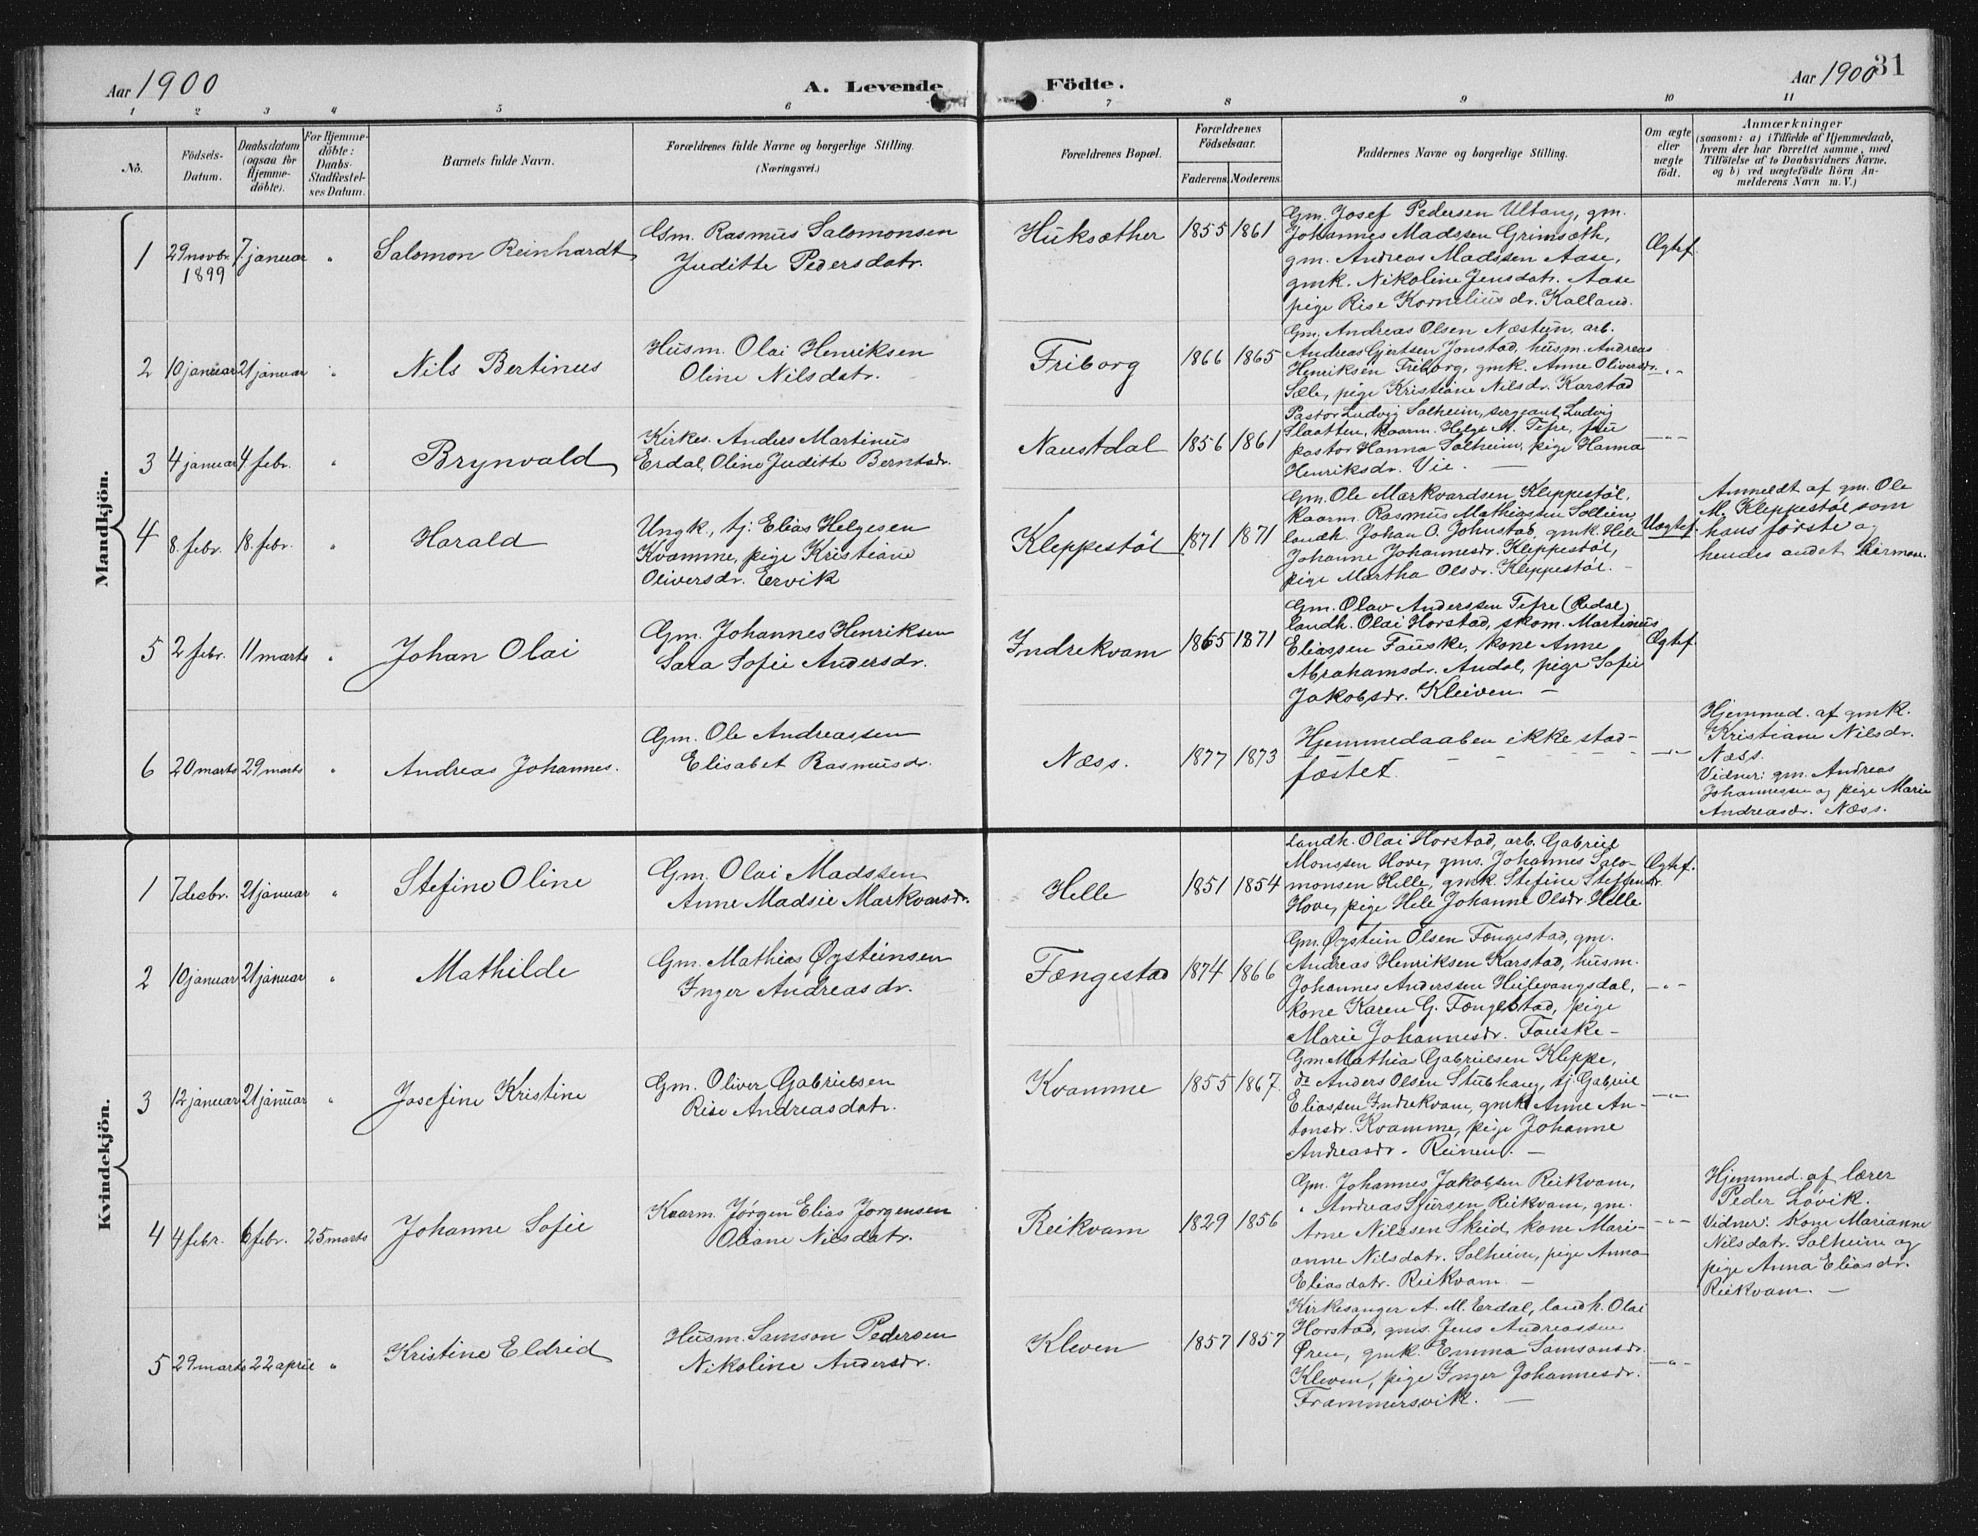 Aar 1900
A. Levende
Födte.
Aar 1900
31
1 2 3 4 5 6 7 8 9 10 11
No.
Födsels-
Datum.
Daabsdatum
(ogsaa for
Hjemme-
döbte).
For Hjemme-
döbte:
Daabs-
Stadfæstel-
ses Datum.
Barnets fulde Navn.
Forældrenes fulde Navne og borgerlige Stilling.
(Næringsvei.)
Forældrenes Bopæl.
Forældrenes
Födselsaar.
Faderens. Moderens.
Faddernes Navne og borgerlige Stilling.
Om ægte
eller
uægte
födt.
Anmærkninger
(saasom: a) i Tilfælde af Hjemmedaab,
hvem der har forrettet samme, med
Tilföielse af to Daabsvidners Navne,
og b) ved uægtefödte Börn An-
melderens Navn m. V.)
Mandkjön.
1
29 novbr.
1899
7. januar
"
Salomon Reinhardt
Gm. Rasmus Salomonsen
Juditte Pedersdatr.
Huksæther
1855
1861
Gm. Josef Pedersen Ultang, gm.
Johannes Madssen Grimsæth,
gm. Andreas Madssen Aase,
gmk. Nikoline Jensdatr. Aase
pige Rise Korneliusdr. Kalland.
Ægtef.
2
10 januar
21 januar
"
Nils Bertinus
Husm. Olai Henriksen
Oline Nilsdatr.
Friborg
1866
1865
Gm. Andreas Olsen Næstun, arb.
Andreas Gjertsen Jonstad, husm. Andreas
Henriksen Friborg, gmk. Anne Oliversdr.
Sæle, pige Kristiane Nilsdr. Karstad
—"—
3
4 januar
4. febr.
"
Brynvald
Kirkes. Anders Martinus
Erdal, Oline Juditte Berntsdr.
Naustdal
1856
1861
Pastor Ludvig Solheim, sergeant Ludvig
Slaatten, kaarm. Helge A. Tefre, fru
pastor Hanna Solheim, pige Hanna
Henriksdr. Vie. —
—"—
4
8. febr.
18. febr.
"
Harald
Ungk., tj. Elias Helgesen
Kvamme, pige Kristiane
Oliversdr. Ervik
Kleppestöl
1871
1871
Gm. Ole Markvardsen Kleppestöl,
kaarm. Rasmus Mathiassen Solheim,
landh. Johan O. Johnstad, gmk. Hele
Johanne Johannesdr. Kleppestöl,
pige Martha Olsdr. Kleppestöl. —
Uægtef.
Anmeldt af gm. Ole
M. Kleppestöl som
hans förste og
hendes andet leirmaal.
5
2 febr.
11 marts
"
Johan Olai
Gm. Johannes Henriksen
Sara Sofie Andersdr.
Indrekvam
1865
1871
Gm. Olav Anderssen Tefre (Redal)
landh. Olai Horstad, skom. Martinus
Eliassen Fauske, kone Anne
Abrahamsdr. Andal, pige Sofie
Jakobsdr. Kleiven —
Ægtef.
6
20 marts
29 marts
"
Andreas Johannes.
Gm. Ole Andreassen
Elisabet Rasmusdr.
Næss.
1877
1873
Hjemmedaaben ikke stad-
fæstet.
—"—
Hjemmed. af gmk.
Kristiane Nilsdr.
Næss.
Vidner: gm. Andreas
Johannessen og pige Marie
Andreasdr. Næss.
Kvindekjön.
1
7 decbr.
21 januar
"
Stefine Oline
Gm. Olai Madssen
Anne Madsie Markvarsdr.
Helle
1851
1854
Landh. Olai Horstad, arb. Gabriel
Monssen Hove, gms. Johannes Salo-
monsen Helle, gmk. Stefine Steffensdr.
Hove, pige Hele Johanne Olsdr. Helle
Ægtef.
2
10 januar
21 januar
"
Mathilde
Gm. Mathias Øysteinsen
Inger Andreasdr.
Fængestad
1874
1866
Gm. Øystein Olsen Fængestad, gm.
Andreas Henriksen Karstad, husm.
Johannes Anderssen Heilevangsdal,
kone Karen G. Fængestad, pige
Marie Johannesdr. Fauske —
—"—
3
12 januar
21 januar
"
Josefine Kristine
Gm. Oliver Gabrielsen
Rise Andreasdatr.
Kvamme
1855
1867.
Gm Mathias Gabrielsen Kleppe,
do Anders Olsen Stubhaug, tj. Gabriel
Eliassen Indrekvam, gmk Anne An-
tonsdr. Kvamme, pige Johanne
Andreasdr. Reinen. —
—"—
4
4 febr.
6 febr.
25 marts
Johanne Sofie
Kaarm. Jørgen Elias Jørgensen
Oliane Nilsdatr.
Reikvam
1829
1856
Gm. Johannes Jakobsen Reikvam,
" Andreas Sjursen Reikvam, gm.
Arne Nilssen Skeid, kone Mari-
anne Nilsdatr. Solheim, pige Anna
Eliasdatr. Reikvam. —
—"—
Hjemmed. af lærer
Peder Løvik.
Vidner: Kone Marianne
Nilsdatr. Solheim og
pige Anna Eliasdr.
Reikvam. —
5
29 marts
22 april
"
Kristine Eldrid
Husm. Samson Pedersen
Nikoline Andersdr.
Kleven
1857
1857
Kirkesanger A. M. Erdal, landh. Olai
Horstad, gms. Jens Andreassen
Øren, gmk. Emma Samsonsdr.
Kleven, pige Inger Johannesdr.
Frammersvik. —
—"—